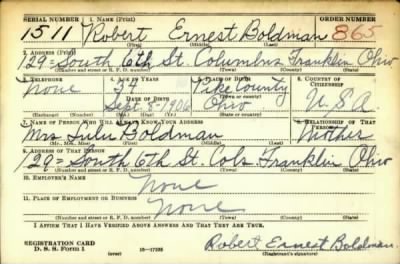 SERIAL NUMBER 1. NAME (Print) ORDER NUMBER
1511 Robert Ernest Boldman 865
(First) (Middle) (Last)
2. ADDRESS (Print)
129 = South 6th St. Columbus Franklin Ohio
(Number and street or R. F. D. number) (Town) (County) (State)
3. TELEPHONE 4. AGE IN YEARS 5. PLACE OF BIRTH 6. COUNTRY OF CITIZENSHIP
None 34 Pike County U.S.A
DATE OF BIRTH
Sept-8-1906 Ohio
(Mo.) (Day) (Yr.) (State or country)
7. NAME OF PERSON WHO WILL ALWAYS KNOW YOUR ADDRESS 8. RELATIONSHIP OF THAT PERSON
Mrs Lulu Boldman Mother
(Mr., Mrs., Miss) (First) (Middle) (Last)
9. ADDRESS OF THAT PERSON
129 = South 6th St. Cols. Franklin Ohio
(Number and street or R. F. D. number) (Town) (County) (State)
10. EMPLOYER'S NAME
None
11. PLACE OF EMPLOYMENT OR BUSINESS
None
(Number and street or R. F. D. number) (Town) (County) (State)
I AFFIRM THAT I HAVE VERIFIED ABOVE ANSWERS AND THAT THEY ARE TRUE.
REGISTRATION CARD
D. S. S. Form 1 (over) Robert Ernest Boldman.
(Registrant's signature)